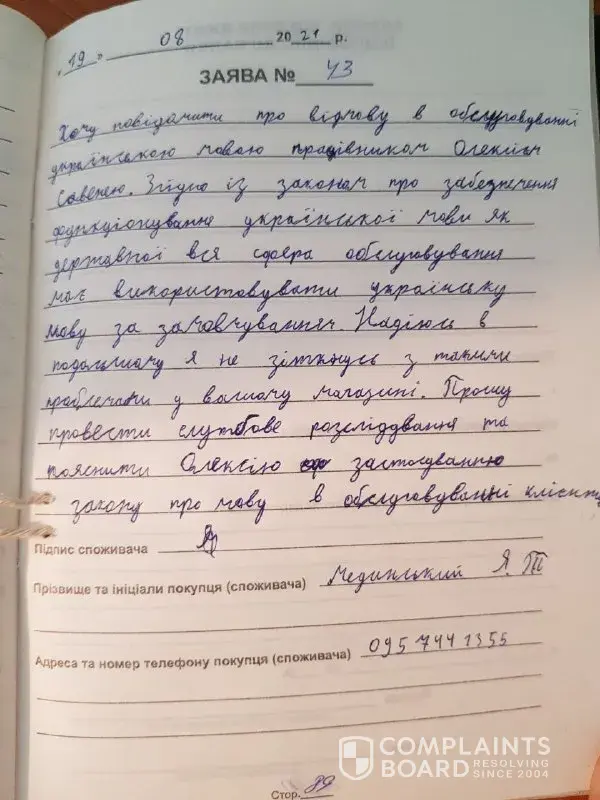 "19" 08 2021 р.
ЗАЯВА № 43
Хочу повідомити про відмову в обслуговуванні
українською мовою працівником Олексієм
Савенею. Згідно із законом про забезпечення
функціонування української мови як
державної вся сфера обслуговування
має використовувати українську
мову за замовчуванням. Надіюсь в
подальшому я не зіткнусь з такими
проблемами у вашому магазині. Прошу
провести службове розслідування та
пояснити Олексію застосування
закону про мову в обслуговуванні клієнтів
Підпис споживача
Прізвище та ініціали покупця (споживача) Мединський Я. П
Адреса та номер телефону покупця (споживача) 095 744 1355
COMPLAINTS
BOARD RESOLVING
SINCE 2004
Стор. 89